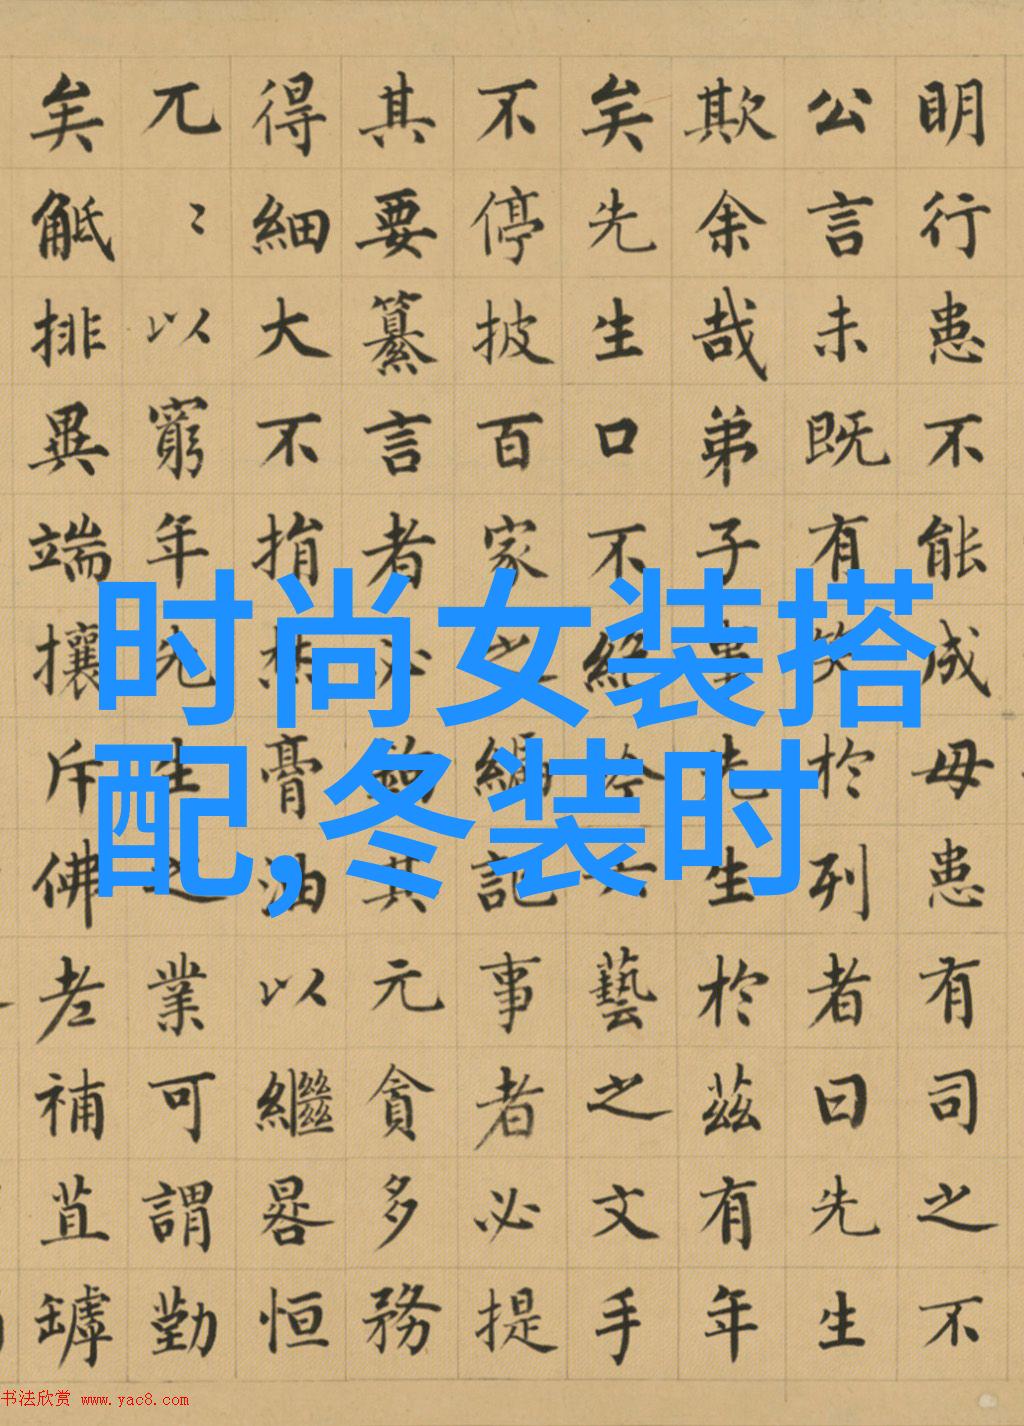 明行患不能成毋患有司之不
公言未既有笑於列者曰先生
欺余哉弟子事先生於茲有年
矣先生口不絕吟六藝之文手
不停披百家之編記事者必提
其要纂言者必鉤其元貪多務
得細大不捐焚膏油以繼晷恒
兀〻以窮年先生之業可謂勤
矣觝排異端攘斥佛老補苴罅
时尚女装搭
配,冬装时
书法欣赏 www.yac8.com